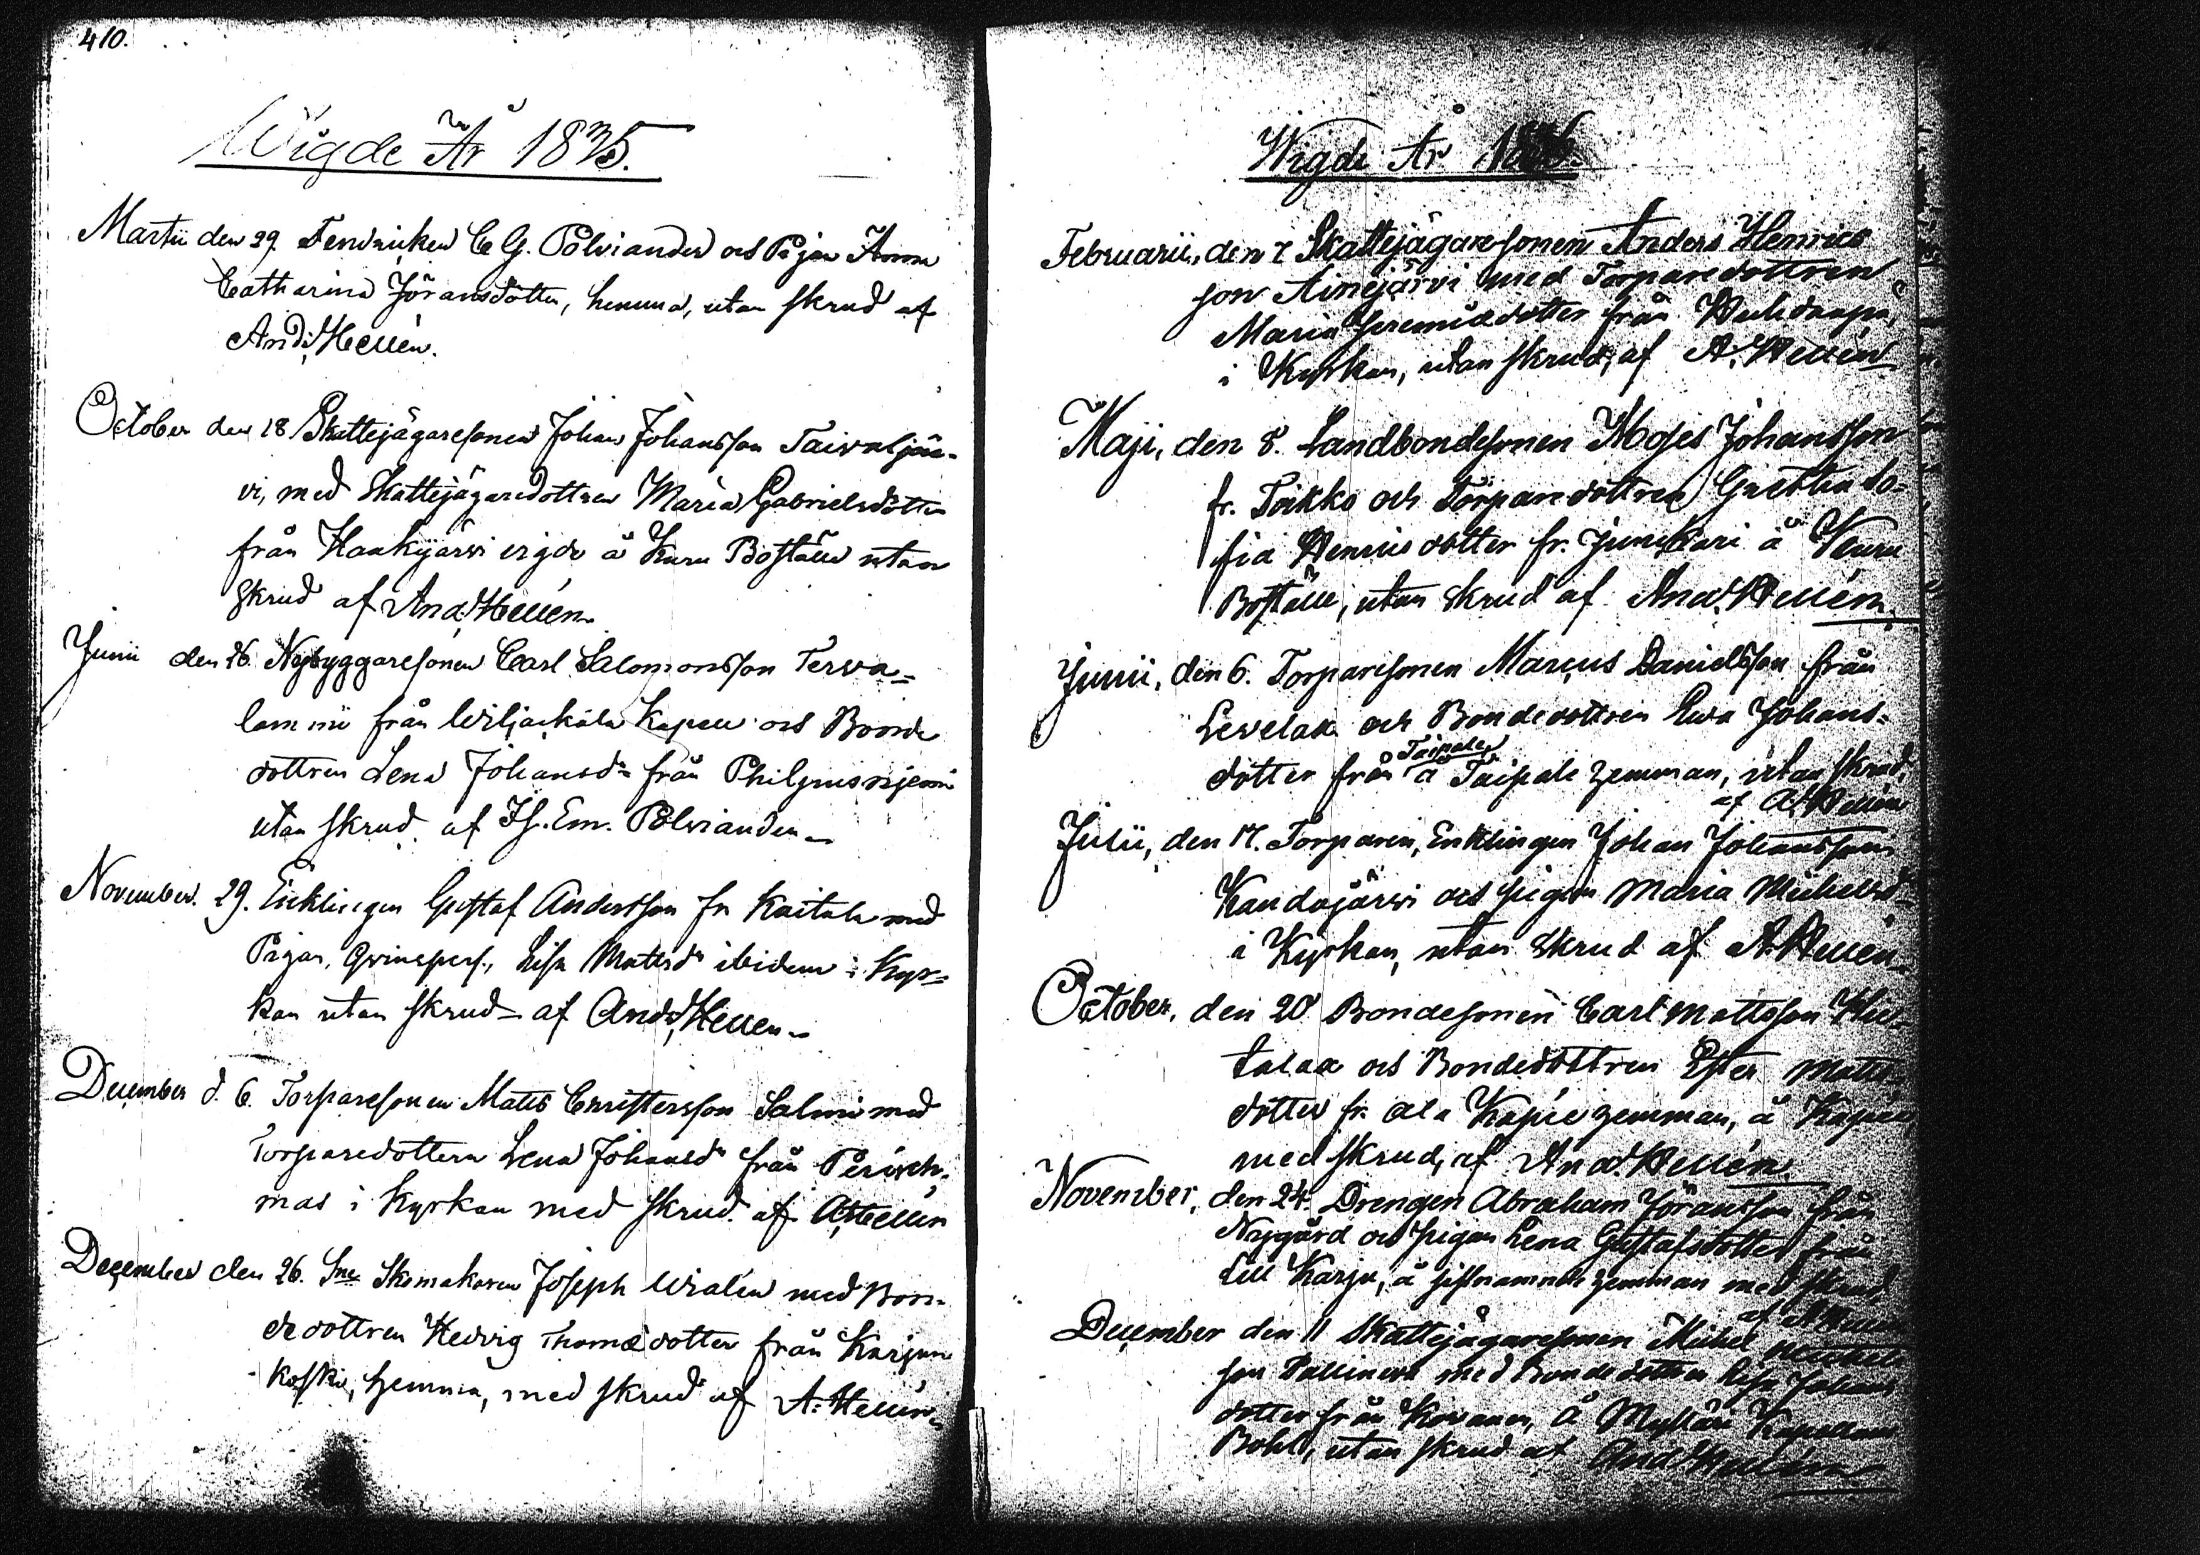 410.
Wigde År 1835.
Martii den 29. Fendricken C G. Polviander och Pigan Anna
Catharina Jöransdotter, hemma, utan skrud af
And. Hellén.
October den 18 Skattejägaresonen Johan Johansson Taivaljär-
vi, med Skattejägaredottren Maria Gabrielsdotter
från Haukijärvi vigde å Kuru Boställe utan
skrud af And. Hellén.
Junii den 26. Nybyggaresonen Carl Salomonsson Terva-
lammi från Wiljackala Kapell och Bonde
dottren Lena Johansdr från Philpusnjemi
utan skrud af Is. Em. Polviander
November. 29. Encklingen Gustaf Andersson fr Kaitala med
Pigan, Qvinspers., Lisa Mattsdr ibidem i Kyr-
kan utan skrud af And. Hellen
December d. 6. Torparesonen Matts Christersson Salmi med
Torparedottern Lena Johansdr från
mas i Kyrkan med skrud af A Hellén
December den 26. Sne Skomakaren Joseph Wialén med Bon-
dedottren Hedvig Thomædotter från Karjun
koski, hemma, med skrud af A. Hellén
Wigde År
Februarii, den 7 Skattejägaresonen Anders Henrics
son Ainejärvi med Torparedottren
Maria Jeremiædotter från
i Kyrkan, utan skrud, af A. Hellén
Maji, den 8. Landbondesonen Moses Johansson
fr. Poikko och Torparedottren Greta So-
fia Henricsdotter fr. Junkkari å Kuru
Boställe, utan skrud af And. Hellén.
Junii, den 6. Torparesonen Marcus Danielsson från
Levelax och Bondedottren Ewa Johans-
dotter från Taipale å Taipale hemman, utan skrud,
af A. Hellén
Julii, den 17. Torparen, Enklingen Johan Johansson
Kandojärvi och pigan Maria Michelsd
i Kyrkan, utan skrud af A. Hellén
October, den 20 Bondesonen Carl Mattsson Hie-
talax och Bondedottren Ester Matts-
dotter fr. Ala Kapee hemman, å Kapee
med skrud, af And. Hellén.
November, den 24. Drengen Abraham Jöransson från
Nygård och pigan Lena Gustafsdotter från
Lill Karju, å sistnämnde hemman med skrud
af A Hellén
December den 11 Skattejägaresonen Michel Michels
son Pallineva med Bondedottren Lisa Johans
dotter från Kovanen, å Myllari Kapellans
Bohl, utan skrud af And Hellén